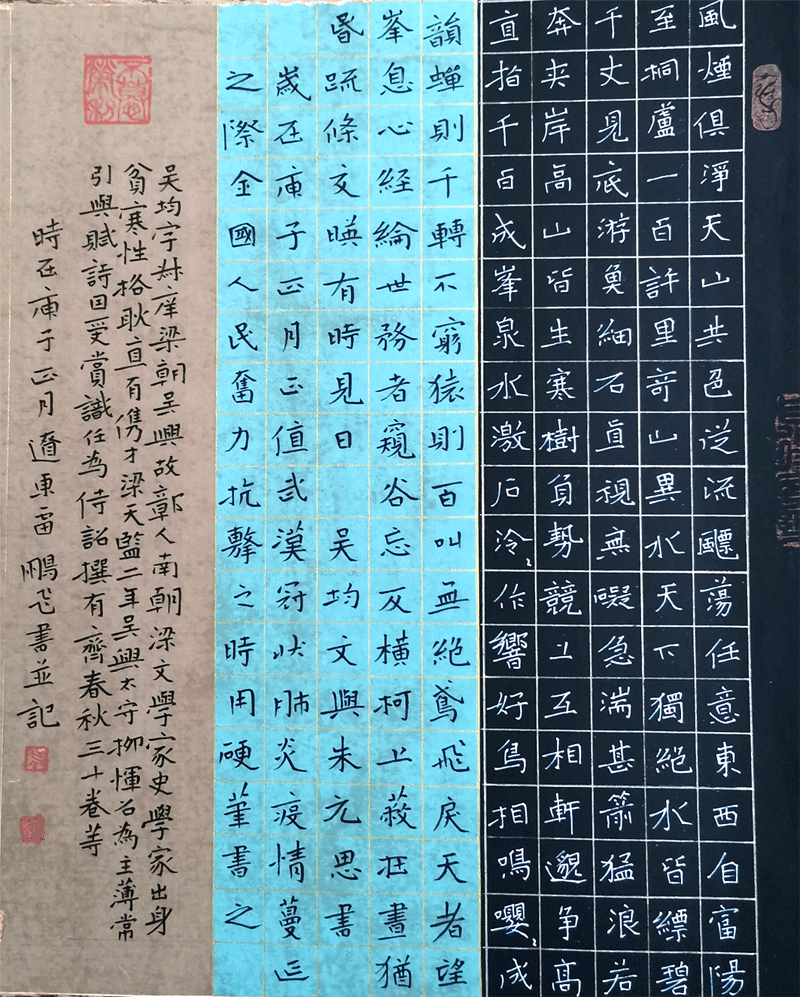 風煙俱淨天山共色從流飄蕩任意東西自富陽
至桐廬一百許里奇山異水天下獨絕水皆縹碧
千丈見底游魚細石直視無礙急湍甚箭猛浪若
奔夾岸高山皆生寒樹負勢競上互相軒邈爭高
直指千百成峯泉水激石泠〻作響好鳥相鳴嚶〻成
韻蟬則千轉不窮猿則百叫無絕鳶飛戾天者望
峯息心經綸世務者窺谷忘反橫柯上蔽在晝猶
昏疏條交映有時見日 吳均文與朱元思書
歲在庚子正月正值武漢冠狀肺炎疫情蔓延
之際全國人民奮力抗擊之時用硬筆書之
吳均字叔庠梁朝吳興故鄣人南朝梁文學家史學家出身
貧寒性格耿直有儁才梁天監二年吳興太守柳惲召為主薄常
引與賦詩因受賞識任為侍詔撰有齊春秋三十卷等
時在庚子正月遼東雷鵬飛書並記